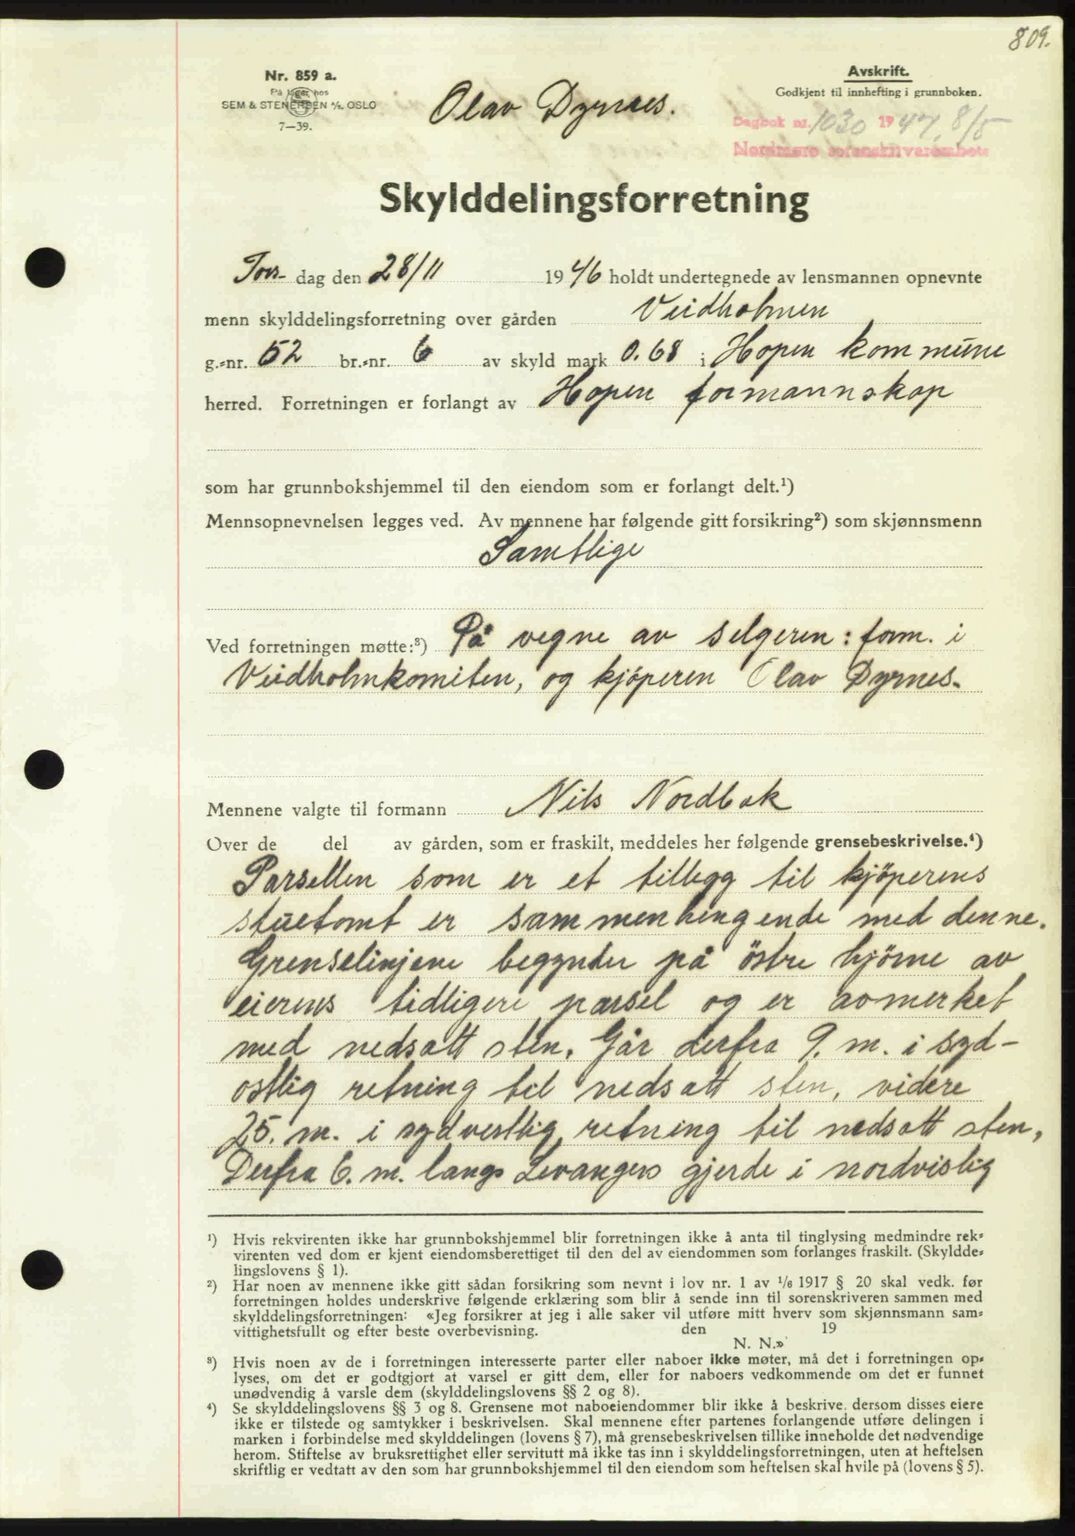 809.
Nr. 859 a.
På lager hos
SEM & STENERSEN A/S, OSLO
7—39.
Olav Dyrnes.
Avskrift.
Godkjent til innhefting i grunnboken.
Dagbok nr. 1030 1947, 8/5
Nordmøre sorenskriverembete
Skylddelingsforretning
Tors- dag den 28/11 1946 holdt undertegnede av lensmannen opnevnte
menn skylddelingsforretning over gården Veidholmen
g.=nr. 52 br.=nr. 6 av skyld mark 0.68 i Hopen kommune
herred. Forretningen er forlangt av Hopen formannskap
som har grunnbokshjemmel til den eiendom som er forlangt delt.¹)
Mennsopnevnelsen legges ved. Av mennene har følgende gitt forsikring²) som skjønnsmenn
Samtlige
Ved forretningen møtte:³) På vegne av selgeren: form. i
Veidholmkomiten, og kjöperen Olav Dyrnes.
Mennene valgte til formann Nils Nordbak
Over de del av gården, som er fraskilt, meddeles her følgende grensebeskrivelse.⁴)
Parsellen som er et tillegg til kjöperens
stuetomt er sammenhengende med denne.
Grenselinjene begynder på östre hjörne av
eierens tidligere parsel og er avmerket
med nedsatt sten. Går derfra 9. m. i syd-
ostlig retning til nedsatt sten, videre
25. m. i sydvestlig retning til nedsatt sten,
Derfra 6. m. langs Levangers gjerde i nordvislig
¹) Hvis rekvirenten ikke har grunnbokshjemmel blir forretningen ikke å anta til tinglysing medmindre rek=
virenten ved dom er kjent eiendomsberettiget til den del av eiendommen som forlanges fraskilt. (Skyldde=
lingslovens § 1).
²) Har noen av mennene ikke gitt sådan forsikring som nevnt i lov nr. 1 av 1/6 1917 § 20 skal vedk. før
forretningen holdes underskrive følgende erklæring som blir å sende inn til sorenskriveren sammen med
skylddelingsforretningen: «Jeg forsikrer at jeg i alle saker vil utføre mitt hverv som skjønnsmann sam=
vittighetsfullt og efter beste overbevisning. den 19
N. N.»
³) Hvis noen av de i forretningen interesserte parter eller naboer ikke møter, må det i forretningen op=
lyses, om det er godtgjort at varsel er gitt dem, eller for naboers vedkommende om det er funnet
unødvendig å varsle dem (skylddelingslovens §§ 2 og 8).
⁴) Se skylddelingslovens §§ 3 og 8. Grensene mot naboeiendommer blir ikke å beskrive, dersom disses eiere
ikke er tilstede og samtykker i beskrivelsen. Skal mennene efter partenes forlangende utføre delingen i
marken i forbindelse med skylddelingen (lovens § 7), må grensebeskrivelsen tillike inneholde det nødvendige
herom. Stiftelse av bruksrettighet eller servitutt må ikke tas inn i skylddelingsforretningen, uten at heftelsen
skriftlig er vedtatt av den som har grunnbokshjemmel til den eiendom som heftelsen skal hvile på (lovens § 5).